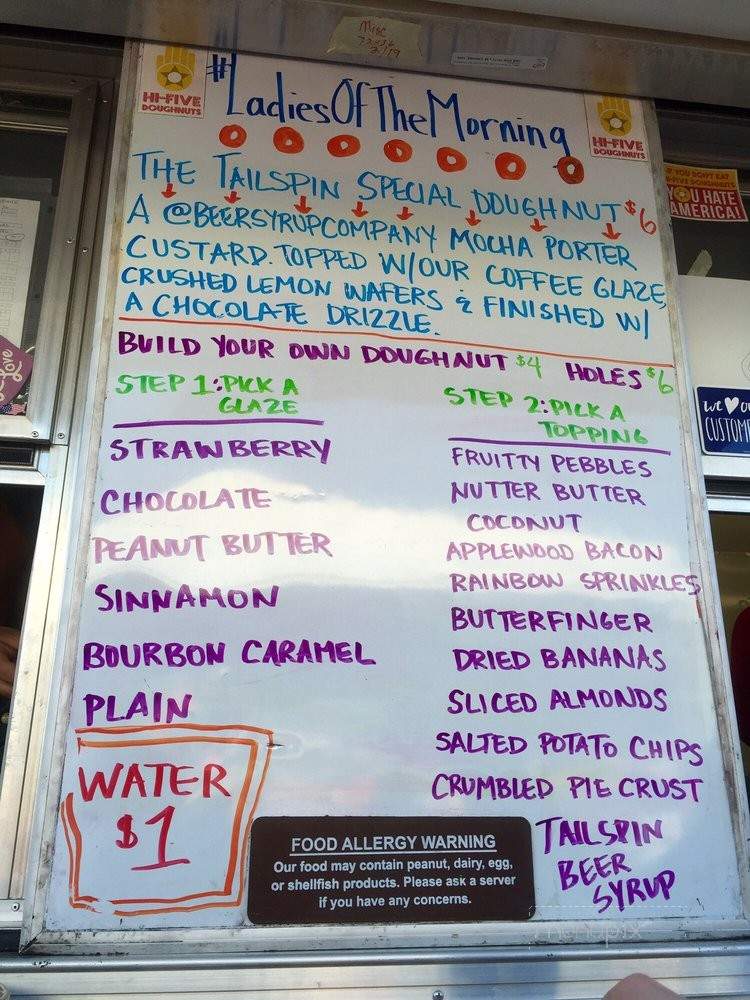 Misc
HI-FIVE
DOUGHNUTS
#LadiesOfTheMorning
HI-FIVE
DOUGHNUTS
IF YOU DON'T EAT
HI-FIVE DOUGHNUTS
YOU HATE
AMERICA!
THE TAILSPIN SPECIAL DOUGHNUT $6
A @BEERSYRUPCOMPANY MOCHA PORTER
CUSTARD. TOPPED W/OUR COFFEE GLAZE,
CRUSHED LEMON WAFERS & FINISHED W/
A CHOCOLATE DRIZZLE.
BUILD YOUR OWN DOUGHNUT $4 HOLES $6
STEP 1: PICK A
GLAZE
STRAWBERRY
CHOCOLATE
PEANUT BUTTER
SINNAMON
BOURBON CARAMEL
PLAIN
STEP 2: PICK A
TOPPING
FRUITTY PEBBLES
NUTTER BUTTER
COCONUT
APPLEWOOD BACON
RAINBOW SPRINKLES
BUTTERFINGER
DRIED BANANAS
SLICED ALMONDS
SALTED POTATO CHIPS
CRUMBLED PIE CRUST
TAILSPIN
BEER
SYRUP
WATER
$1
FOOD ALLERGY WARNING
Our food may contain peanut, dairy, egg,
or shellfish products. Please ask a server
if you have any concerns.
Love
WE O
CUSTOME
menupix